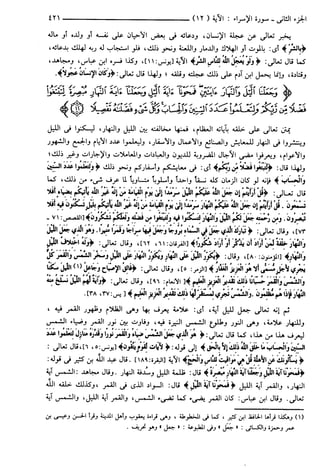 الجزء الثاني - سورة الإسراء : الآية (١٢) ٤٢١
يخبر تعالى عن عجلة الإنسان، ودعائه في بعض الأحيان على نفسه أو ولده أو ماله
﴿بالشر﴾ أي: بالموت أو الهلاك والدمار واللعنة ونحو ذلك، فلو استجاب له ربه لهلك بدعائه،
كما قال تعالى: ﴿ولو يعجل الله للناس الشر﴾ الآية [يونس: ١١]، وكذا فسره ابن عباس، ومجاهد،
وقتادة، وإنما يحمل ابن آدم على ذلك عجلته وقلقه ؛ ولهذا قال تعالى: ﴿وكان الإنسان عجولا﴾.
﴿وجعلنا الليل والنهار آيتين فمحونا آية الليل وجعلنا آية النهار مبصرة لتبتغوا
فضلا من ربكم ولتعلموا عدد السنين والحساب وكل شيء فصلناه تفصيلا﴾
يمتن تعالى على خلقه بآياته العظام، فمنها مخالفته بين الليل والنهار، ليسكنوا في الليل
وينتشروا في النهار للمعايش والصنائع والأعمال والأسفار، وليعلموا عدد الأيام والجمع والشهور
والأعوام، ويعرفوا مضي الآجال المضروبة للديون والعبادات والمعاملات والإجارات وغير ذلك؛
ولهذا قال: ﴿لتبتغوا فضلا من ربكم﴾ أي: في معايشكم وأسفاركم ونحو ذلك ﴿ولتعلموا عدد السنين
والحساب﴾ فإنه لو كان الزمان كله نسقا واحدا وأسلوبا متساويا لما عرف شيء من ذلك، كما
قال تعالى: ﴿قل أرأيتم إن جعل الله عليكم الليل سرمدا إلى يوم القيامة من إله غير الله يأتيكم بضياء أفلا
تسمعون قل أرأيتم إن جعل الله عليكم النهار سرمدا إلى يوم القيامة من إله غير الله يأتيكم بليل تسكنون فيه أفلا
تبصرون. ومن رحمته جعل لكم الليل والنهار لتسكنوا فيه ولتبتغوا من فضله ولعلكم تشكرون﴾ [القصص: ٧١ -
٧٣]، وقال تعالى: ﴿تبارك الذي جعل في السماء بروجا وجعل فيها سراجا وقمرا منيرا. وهو الذي جعل الليل
والنهار خلفة لمن أراد أن يذكر أو أراد شكورا﴾ [الفرقان: ٦١، ٦٢]، وقال تعالى: ﴿وله اختلاف الليل
والنهار﴾ [المؤمنون: ٨٠]، وقال: ﴿يكور الليل على النهار ويكور النهار على الليل وسخر الشمس والقمر كل
يجري لأجل مسمى ألا هو العزيز الغفار﴾ [الزمر: ٥]، وقال تعالى: ﴿فالق الإصباح وجاعل (١) الليل سكنا
والشمس والقمر حسبانا ذلك تقدير العزيز العليم﴾ [الأنعام: ٩٦]، وقال تعالى: ﴿وآية لهم الليل نسلخ منه
النهار فإذا هم مظلمون. والشمس تجري لمستقر لها ذلك تقدير العزيز العليم﴾ [يس: ٣٧، ٣٨].
ثم إنه تعالى جعل لليل آية، أي: علامة يعرف بها وهي الظلام وظهور القمر فيه ،
وللنهار علامة، وهي النور وطلوع الشمس النيرة فيه، وفاوت بين نور القمر وضياء الشمس
ليعرف هذا من هذا، كما قال تعالى: ﴿هو الذي جعل الشمس ضياء والقمر نورا وقدره منازل لتعلموا عدد
السنين والحساب ما خلق الله ذلك إلا بالحق﴾ إلى قوله: ﴿لآيات لقوم يتقون﴾ [يونس: ٥، ٦]، وقال تعالى:
﴿يسألونك عن الأهلة قل هي مواقيت للناس والحج﴾ الآية [البقرة: ١٨٩]. قال عبد الله بن كثير في قوله:
﴿فمحونا آية الليل وجعلنا آية النهار مبصرة﴾ قال: ظلمة الليل وسدفة النهار. وقال مجاهد: الشمس آية
النهار، والقمر آية الليل ﴿فمحونا آية الليل﴾ قال: السواد الذي في القمر، وكذلك خلقه الله
تعالى. وقال ابن عباس: كان القمر يضيء كما تضيء الشمس، والقمر آية الليل، والشمس آية
(١) وهكذا قرأها الحافظ ابن كثير ، كما في المخطوطة ، وهي قراءة يعقوب وأهل المدينة وقرأ الحسن وعيسى بن
عمر وحمزة والكسائي: «جعل» وفي المطبوعة : «جعل» وهو تحريف .